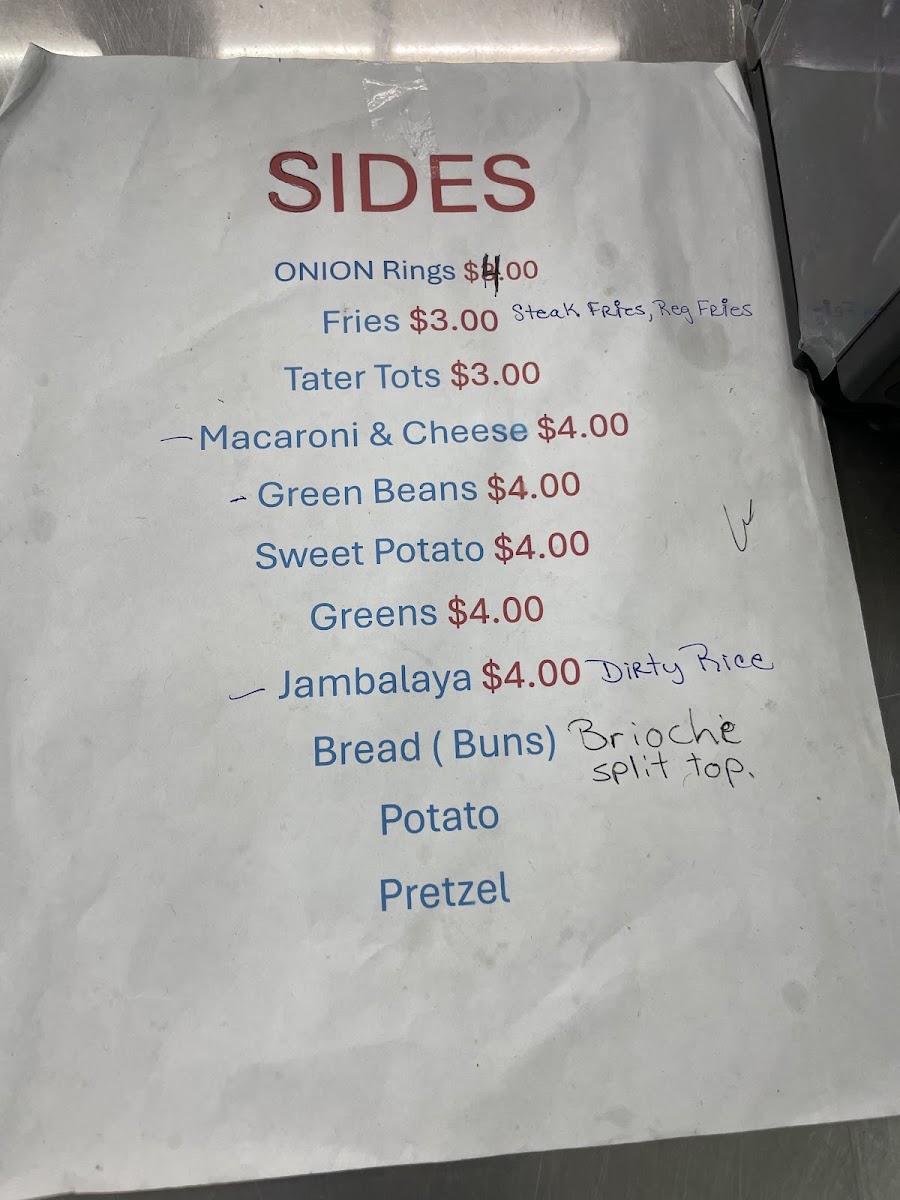 SIDES
ONION Rings $4.00
Fries $3.00 Steak Fries, Reg Fries
Tater Tots $3.00
- Macaroni & Cheese $4.00
- Green Beans $4.00
Sweet Potato $4.00
Greens $4.00
- Jambalaya $4.00 Dirty Rice
Bread ( Buns) Brioche
split top.
Potato
Pretzel